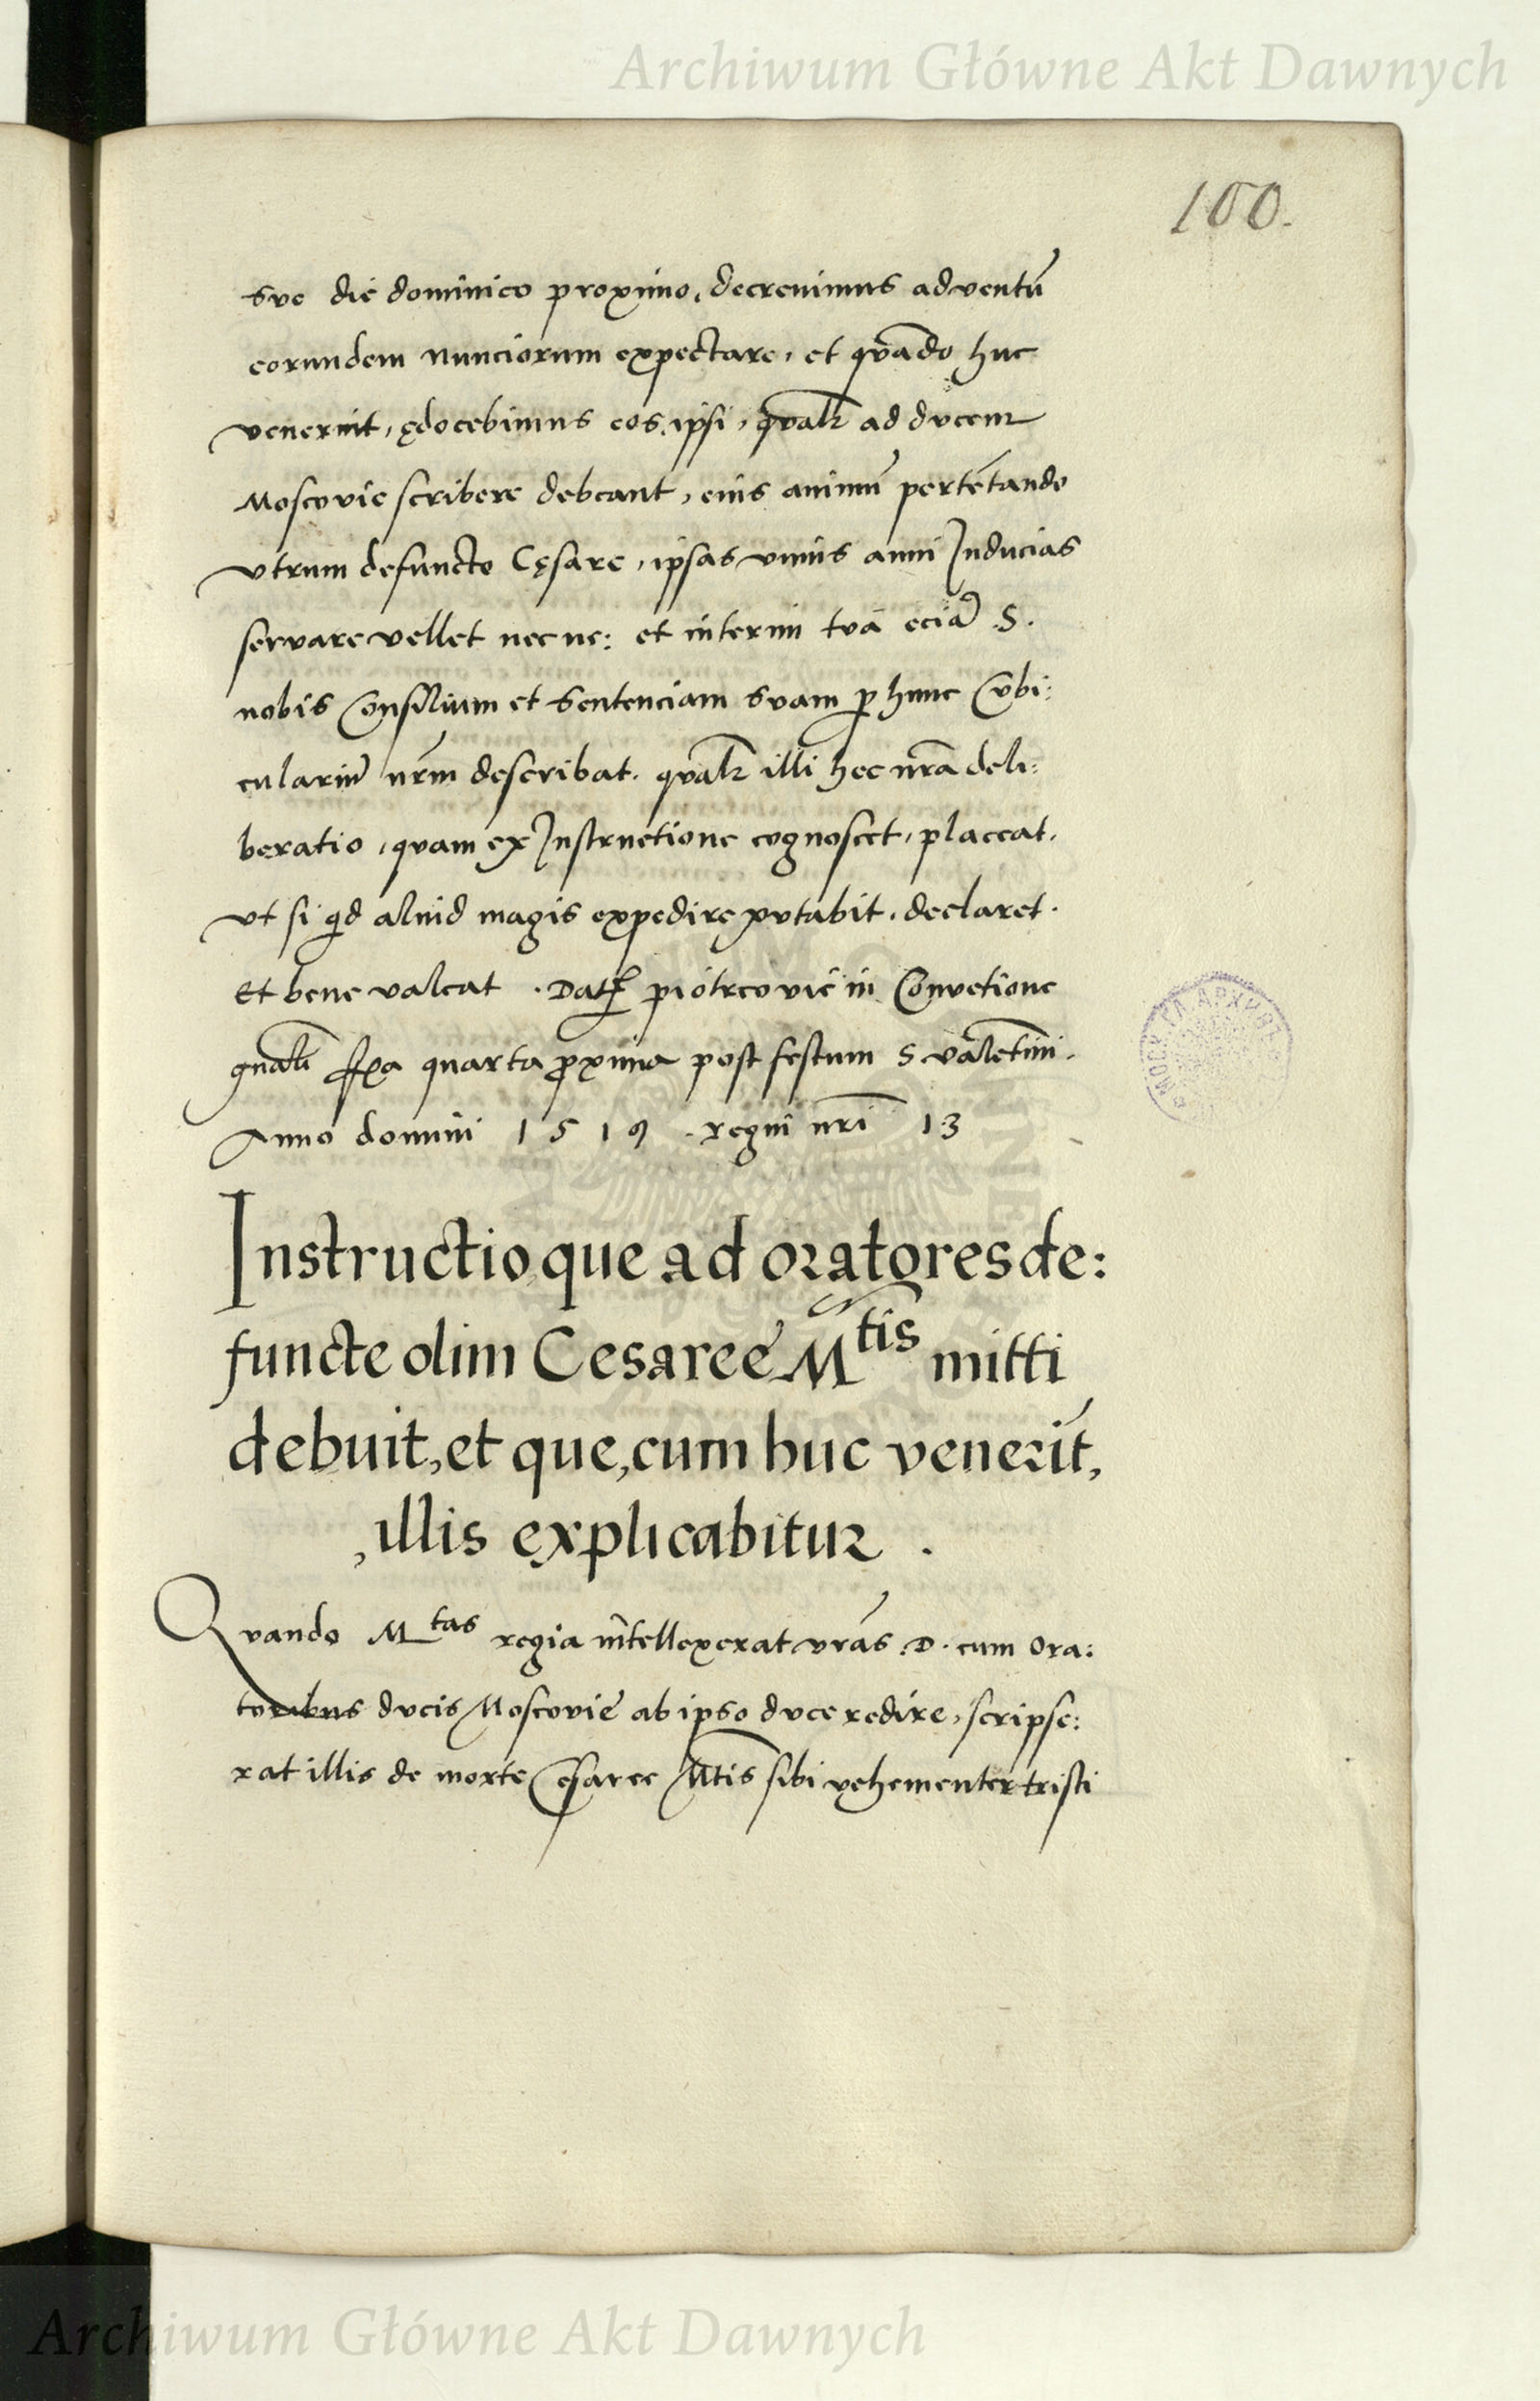 Archiwum Główne Akt Dawnych
100.
sve die dominico proximo, decrevimus adventū
eorundem nunciorum expectare, et qvādo huc
venerint, ędocebimus eos ipsi, qvalr ad dvcem
Moscovie scribere debeant, eius animū pertētando
vtrum defuncto Cęsare, ipsas vnius anni Inducias
servare vellet nec ne: et interim tva eciā .S.
nobis Consilium et Sentenciam svam ꝑ hunc Cubi:
culariū nrm̄ describat. qvalr illi hec nr̄a deli:
beratio, qvam ex Instructione cognoscet, placeat.
vt si qd aliud magis expedire pvtabit, declaret.
Et bene valeat . Datꝭ piotrcovie in Convetione
gnāli fer̄ia quarta proxima post festum S valētini.
Anno domini 1519 . regni nr̄i 13
Instructio que ad oratores de:
functe olim Cesaree Mtis mitti
debuit, et que, cum huc venerīt,
illis explicabitur .
Qvando Mtas regia intellexerat vrās .D. cum Ora:
toribus dvcis Moscovie ab ipso dvce redire, scripse:
rat illis de morte Cesaree Mtis sibi vehementer tristi
МОСК. ГЛ. АРХИВЪ
Archiwum Główne Akt Dawnych